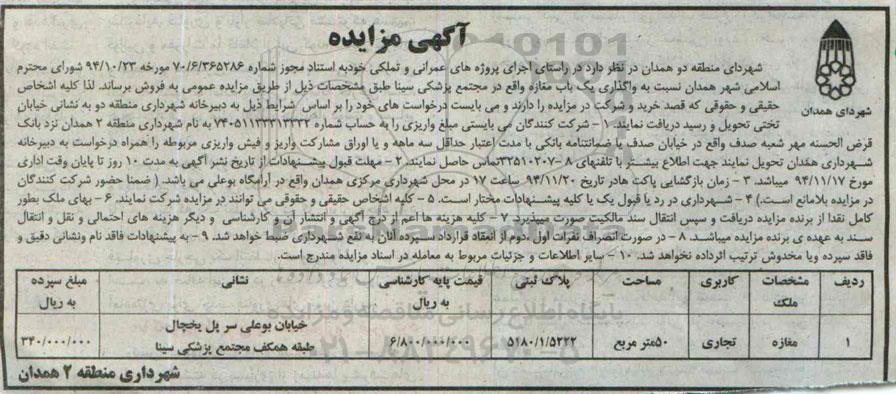 آگهی مزایده
شهرداری همدان
شهردای منطقه دو همدان در نظر دارد در راستای اجرای پروژه های عمرانی و تملکی خودبه استناد مجوز شماره ۷۰/۶/۳۶۵۲۸۶ مورخه ۹۴/۱۰/۲۳ شورای محترم
اسلامی شهر همدان نسبت به واگذاری یک باب مغازه واقع در مجتمع پزشکی سینا طبق مشخصات ذیل از طریق مزایده عمومی به فروش برساند. لذا کلیه اشخاص
حقیقی و حقوقی که قصد خرید و شرکت در مزایده را دارند و می بایست درخواست های خود را بر اساس شرایط ذیل به دبیرخانه شهرداری منطقه دو به نشانی خیابان
تختی تحویل و رسید دریافت نمایند. ۱ – شرکت کنندگان می بایستی مبلغ واریزی را به حساب شماره ۷۴۰۵۱۱۳۳۳۱۳۳۳۲ به نام شهرداری منطقه ۲ همدان نزد بانک
قرض الحسنه مهر شعبه صدف واقع در خیابان صدف یا ضمانتنامه بانکی با مدت اعتبار حداقل سه ماهه و یا اوراق مشارکت واریز و فیش واریزی مربوطه را همراه درخواست به دبیرخانه
شهرداری همدان تحویل نمایند جهت اطلاع بیشتر با تلفنهای ۸ –۳۲۵۱۰۲۰۷تماس حاصل نمایند. ۲ – مهلت قبول پیشنهادات از تاریخ نشر آگهی به مدت ۱۰ روز تا پایان وقت اداری
مورخ ۹۴/۱۱/۱۷ میباشد. ۳ – زمان بازگشایی پاکت هادر تاریخ ۹۴/۱۱/۲۰ ساعت ۱۷ در محل شهرداری مرکزی همدان واقع در آرامگاه بوعلی می باشد. ( ضمنا حضور شرکت کنندگان
در مزایده بلامانع است.) ۴ – شهرداری در رد یا قبول یک یا کلیه پیشنهادات مختار است. ۵ – کلیه اشخاص حقیقی و حقوقی می توانند در مزایده شرکت نمایند. ۶ – بهای ملک بطور
کامل نقدا از برنده مزایده دریافت و سپس انتقال سند مالکیت صورت میپذیرد ۷ – کلیه هزینه ها اعم از درج آگهی و انتشار آن و کارشناسی و دیگر هزینه های احتمالی و نقل و انتقال
سند به عهده ی برنده مزایده میباشد. ۸ – در صورت انصراف نفرات اول ،دوم از انعقاد قرارداد سپرده آنان به نفع شهرداری ضبط خواهد شد. ۹ – به پیشنهادات فاقد نام ونشانی دقیق و
فاقد سپرده ویا مخدوش ترتیب اثرداده نخواهد شد. ۱۰ – سایر اطلاعات و جزئیات مربوط به معامله در اسناد مزایده مندرج است.
ردیف مشخصات ملک کاربری مساحت پلاک ثبتی قیمت پایه کارشناسی به ریال نشانی مبلغ سپرده به ریال
۱ مغازه تجاری ۵۰متر مربع ۵۱۸۰/۱/۵۲۲۲ ۶/۸۰۰/۰۰۰/۰۰۰ خیابان بوعلی سر پل یخچال طبقه همکف مجتمع پزشکی سینا ۳۴۰/۰۰۰/۰۰۰
شهرداری منطقه ۲ همدان
پایگاه اطلاع رسانی مناقصه و مزایده
۰۲۱–۸۸۳۴۹۶۷۰–۵